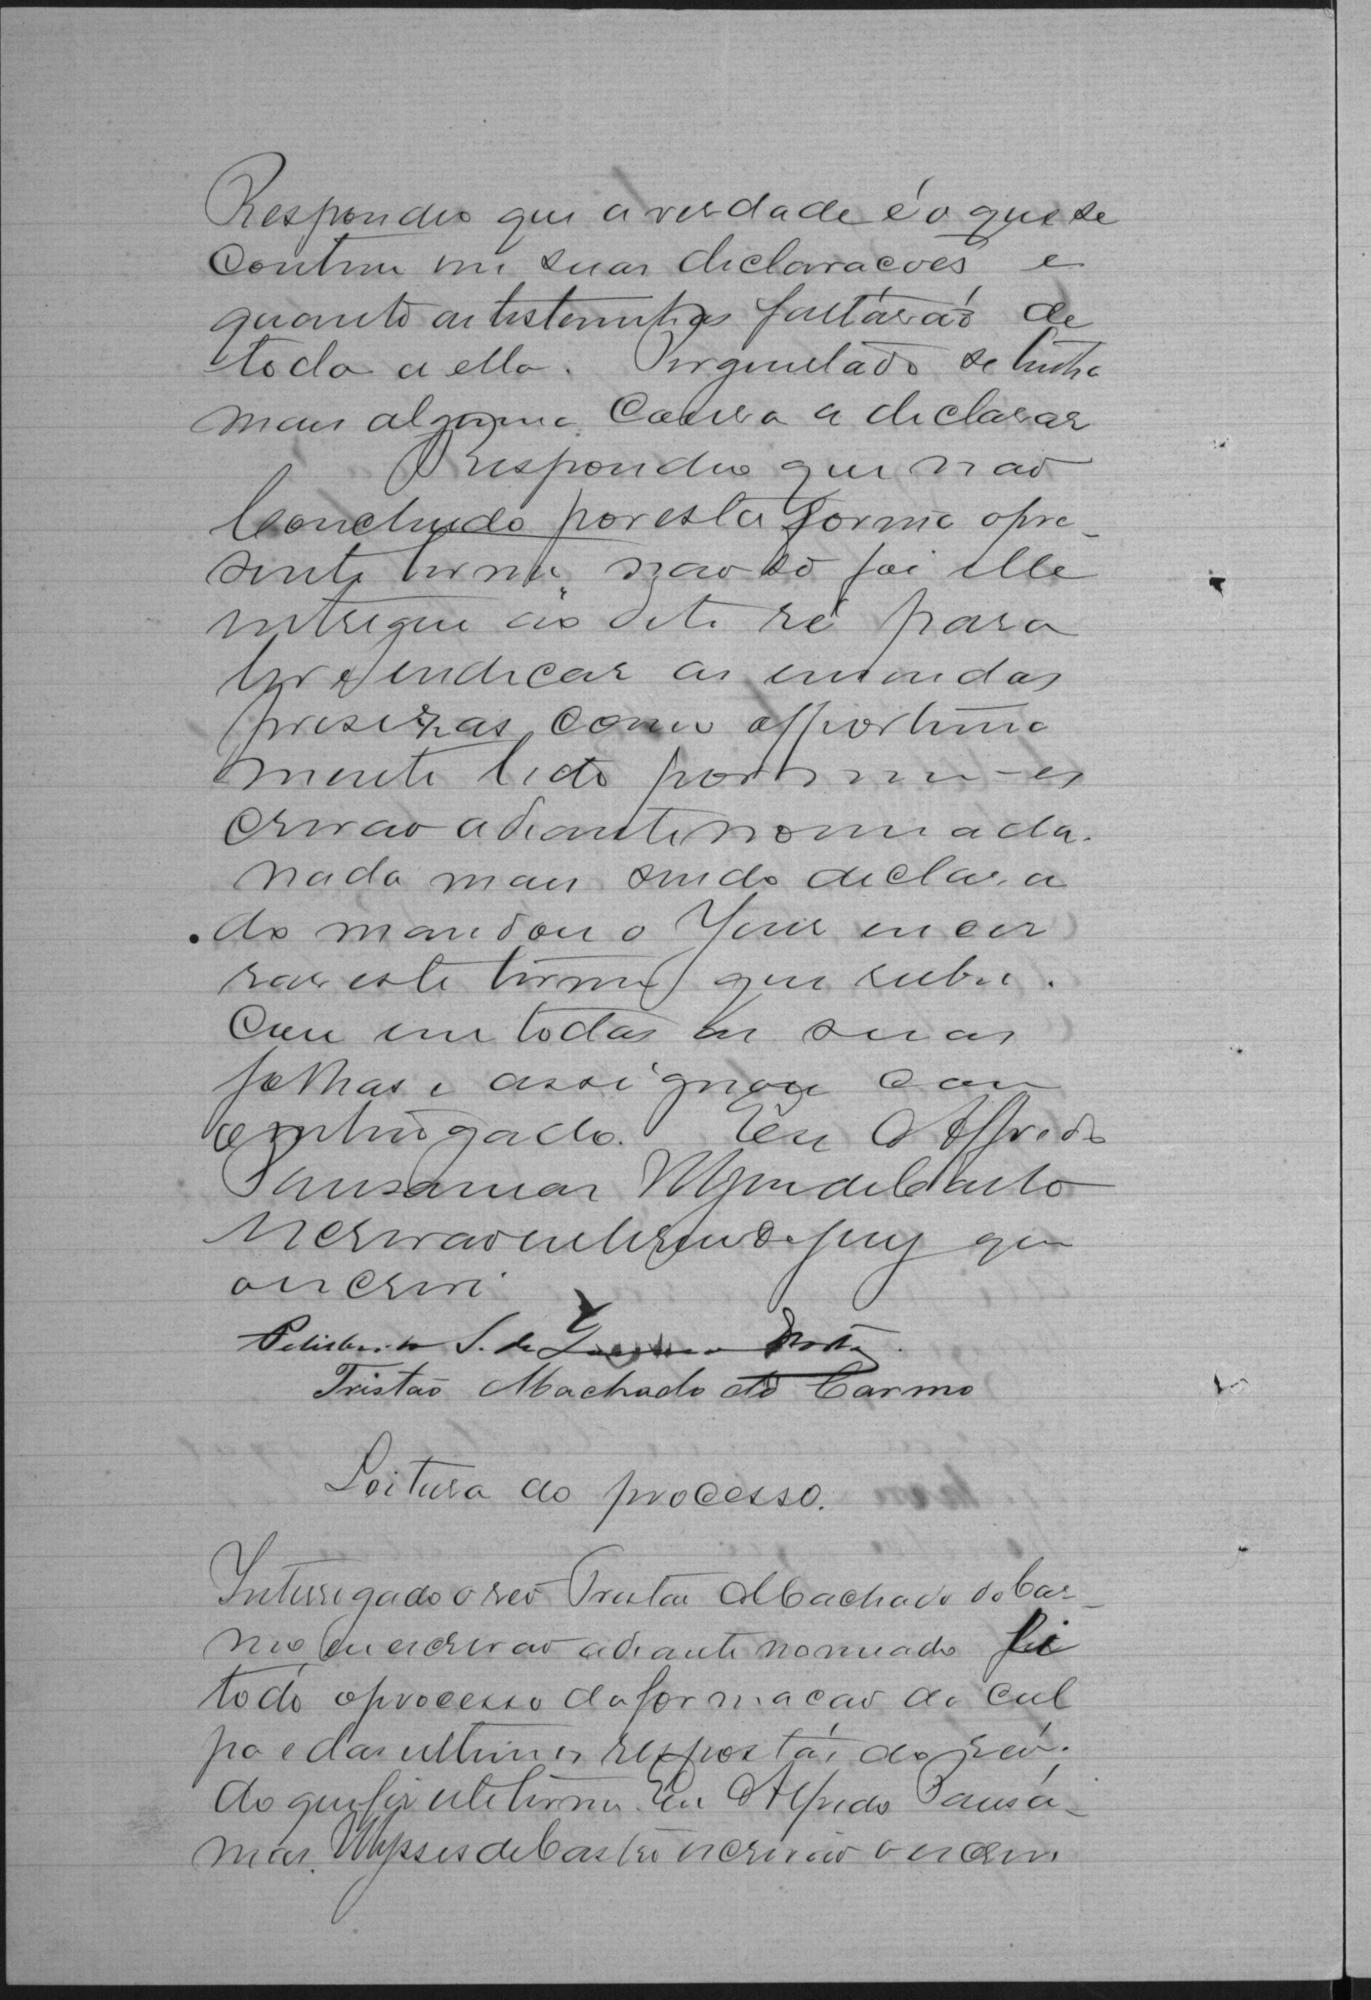 Respondeo que a verdade é o que se
contem em suas declaracoes e
quanto as testemunhas faltárão de
toda a ella. Perguntado se tinha
mais alguma cousa a declarar
Respondeo que não
Concluido por esta forma o pre-
sente termo, não só foi elle
entregue ao dito ré para
ler e indicar as emendas
precizas como opportuna
mente lido por mim es
crivao adiante nomeada.
nada mais sendo declara
do mandou o Juiz encer
rar este termo que rubri.
cou em todas as suas
folhas e assignou com
o entrigado. Eu Alfredo
Pausanias Ulysses de Castro
escrivao que
o escrevi
S. de
Tristão Machado do Carmo
Leitura do processo.
Interrogado o reo Tristao Machado do Car-
mo, eu escrivao adiante nomeado li
todo o processo da formacao da cul
pa e das ultimas respostas do réo,
do que fiz este termo. Eu Alfredo Pausa-
nias Ulysses de Castro escrivão o escrevi